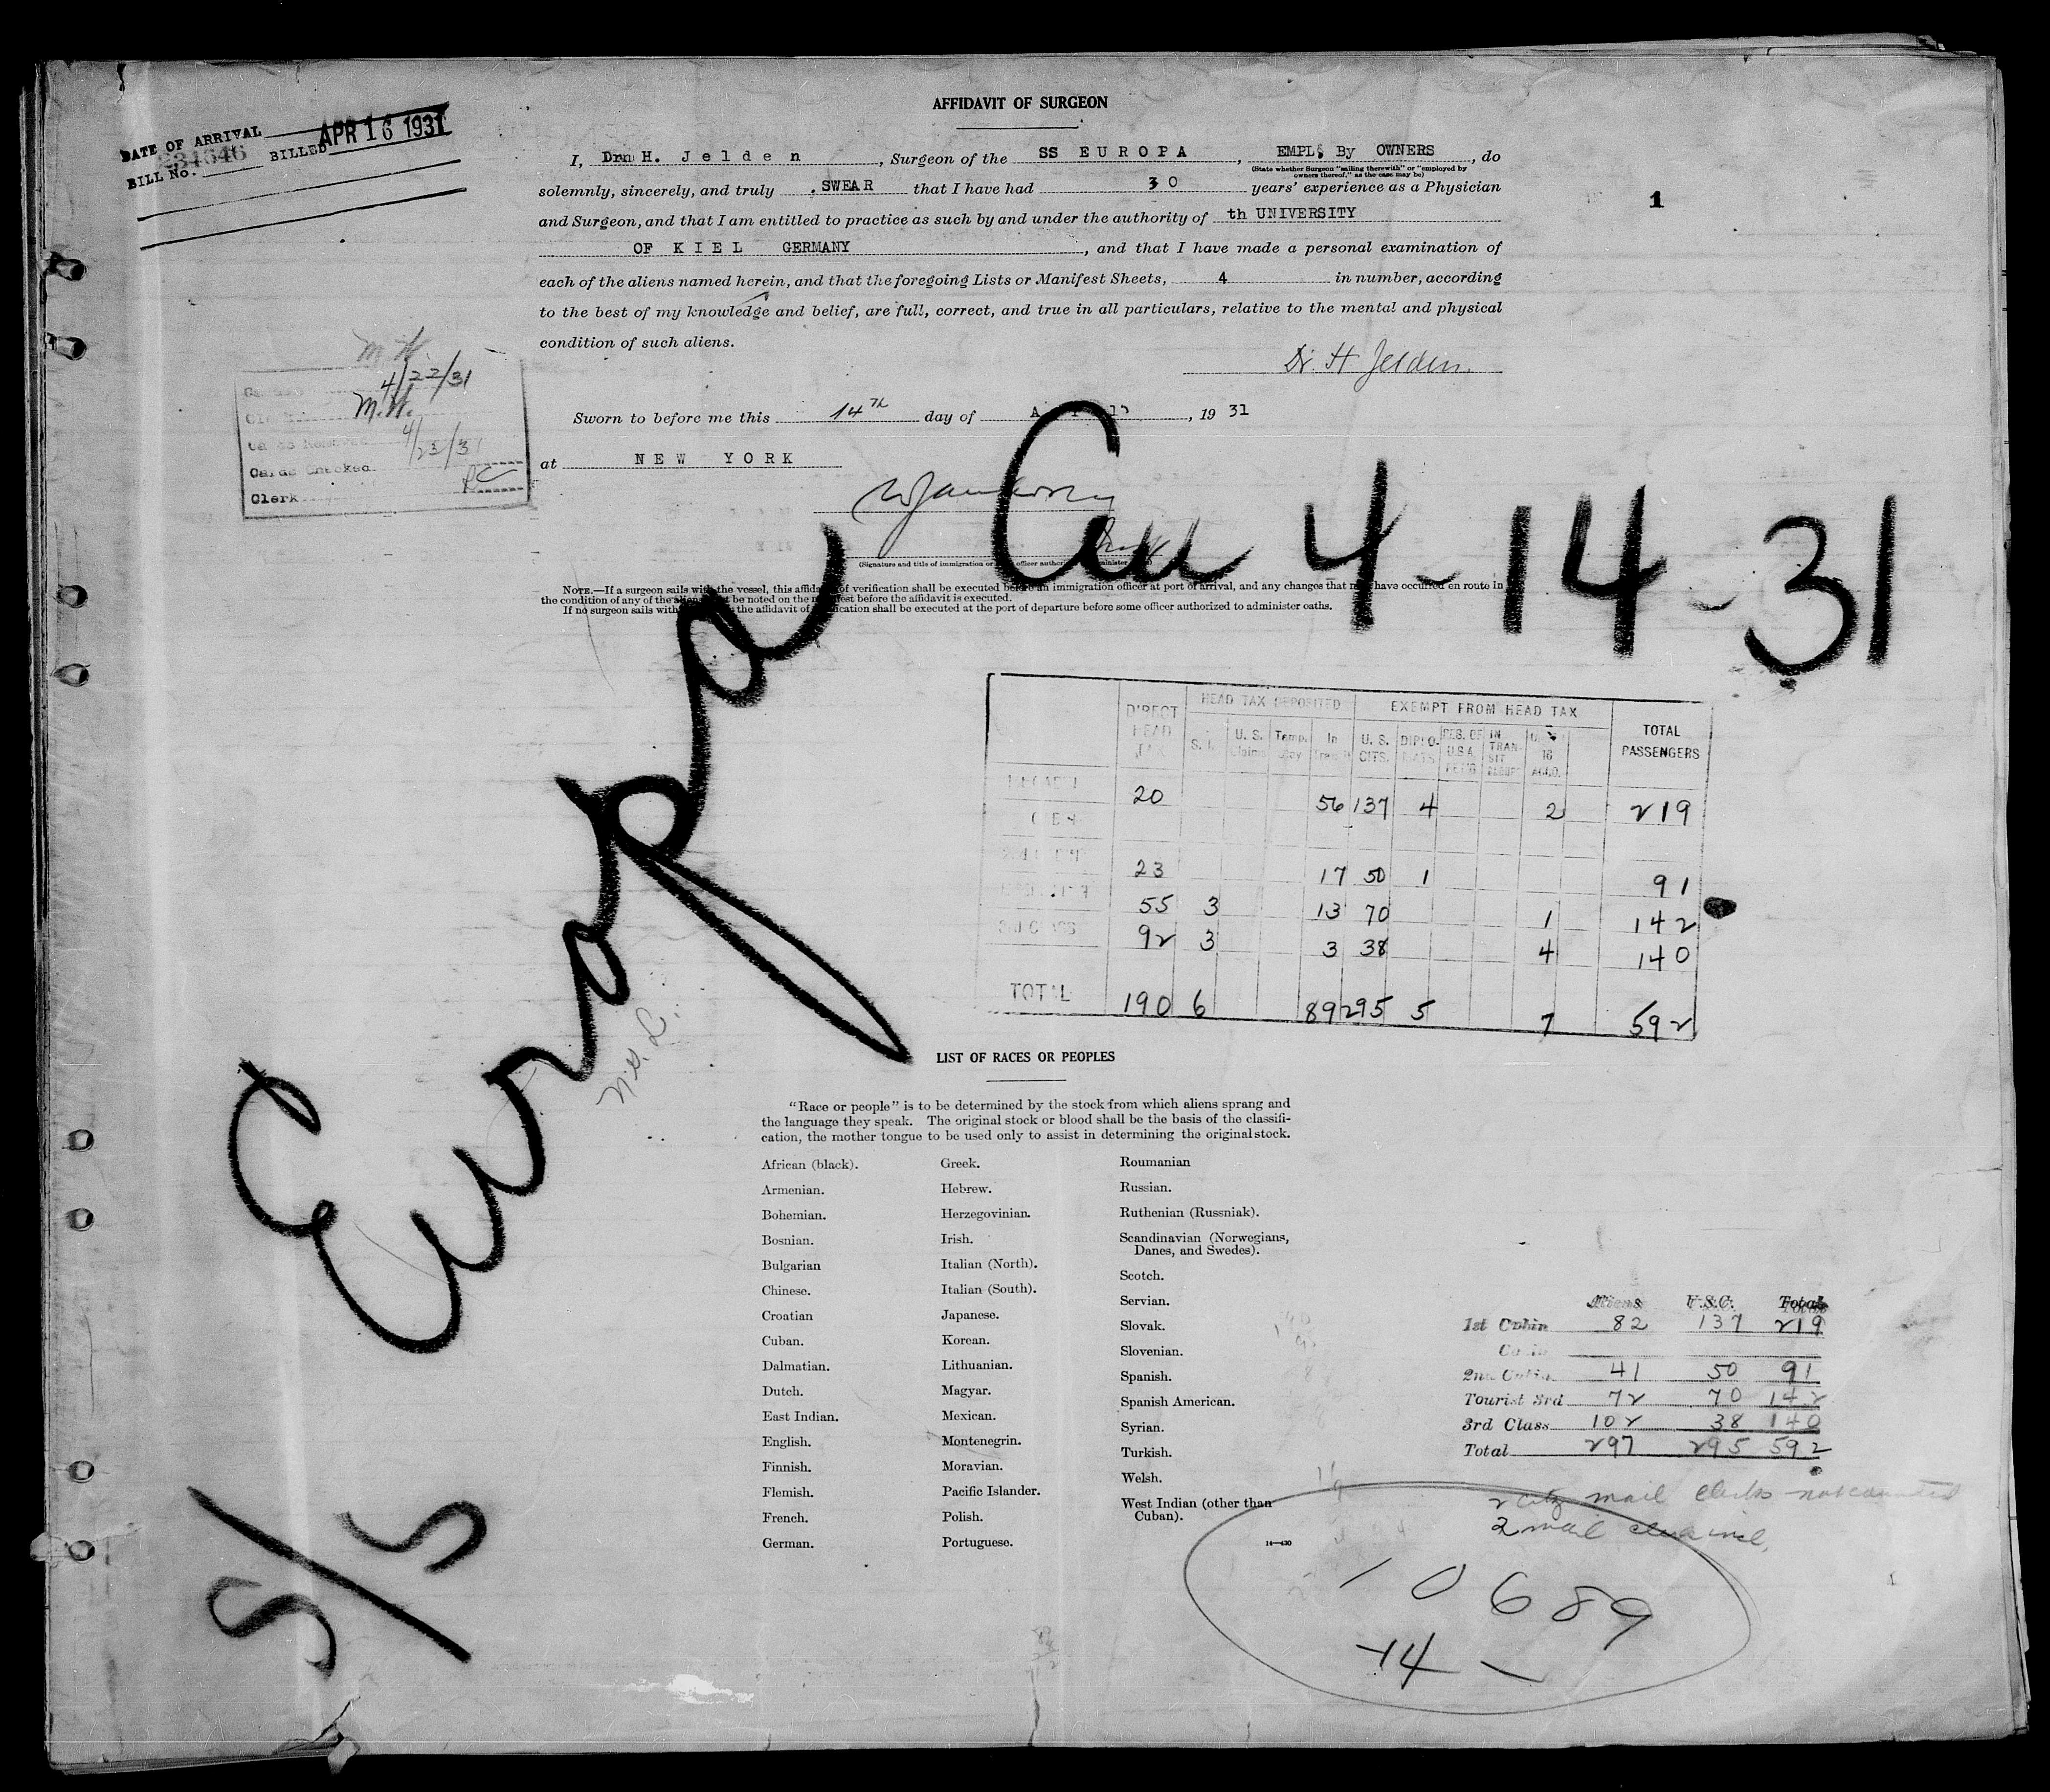 DATE OF ARRIVAL
APR 16 1931
BILL No. 234646 BILLED
AFFIDAVIT OF SURGEON
I, Drn H. Jelden, Surgeon of the SS EUROPA, EMPL, By OWNERS, do
(State whether Surgeon "sailing therewith" or "employed by
owners thereof," as the case may be)
solemnly, sincerely, and truly .SWEAR that I have had 30 years' experience as a Physician
1
and Surgeon, and that I am entitled to practice as such by and under the authority of th UNIVERSITY
OF KIEL GERMANY, and that I have made a personal examination of
each of the aliens named herein, and that the foregoing Lists or Manifest Sheets, 4 in number, according
to the best of my knowledge and belief, are full, correct, and true in all particulars, relative to the mental and physical
condition of such aliens.
Dr. H Jelden.
M.W.
4/22/31
M.W.
4/23/31
Cards Checked
Clerk
Sworn to before me this 14th day of, 19 31
at NEW YORK
NOTE.—If a surgeon sails with the vessel, this affidavit of verification shall be executed before an immigration officer at port of arrival, and any changes that may have occurred en route in
the condition of any of the aliens must be noted on the manifest before the affidavit is executed.
If no surgeon sails with the affidavit of verification shall be executed at the port of departure before some officer authorized to administer oaths.
S/S Europa, Arr 4-14-31
DIRECT HEAD TAX
HEAD TAX DEPOSITED
EXEMPT FROM HEAD TAX
TOTAL PASSENGERS
S.I. U.S. Claims Temp. Stay In Transit U.S. CITS. DIPLO-MATS RES. OF U.S.A. RET'G IN TRAN-SIT 16 ACC.
20 56 137 4 2 219
23 17 50 1 91
55 3 13 70 1 142
92 3 3 38 4 140
TOTAL 190 6 89 295 5 7 592
LIST OF RACES OR PEOPLES
"Race or people" is to be determined by the stock from which aliens sprang and
the language they speak. The original stock or blood shall be the basis of the classifi-
cation, the mother tongue to be used only to assist in determining the original stock.
African (black).
Armenian.
Bohemian.
Bosnian.
Bulgarian
Chinese.
Croatian
Cuban.
Dalmatian.
Dutch.
East Indian.
English.
Finnish.
Flemish.
French.
German.
Greek.
Hebrew.
Herzegovinian.
Irish.
Italian (North).
Italian (South).
Japanese.
Korean.
Lithuanian.
Magyar.
Mexican.
Montenegrin.
Moravian.
Pacific Islander.
Polish.
Portuguese.
Roumanian
Russian.
Ruthenian (Russniak).
Scandinavian (Norwegians,
Danes, and Swedes).
Scotch.
Servian.
Slovak.
Slovenian.
Spanish.
Spanish American.
Syrian.
Turkish.
Welsh.
West Indian (other than
Cuban).
14—430
Aliens U.S.C. Total
1st Cabin 82 137 219
2nd Cabin 41 50 91
Tourist 3rd 72 70 142
3rd Class 102 38 140
Total 297 295 592
2 city mail clerks not counted
2 mail clerks incl.
10689
-14-